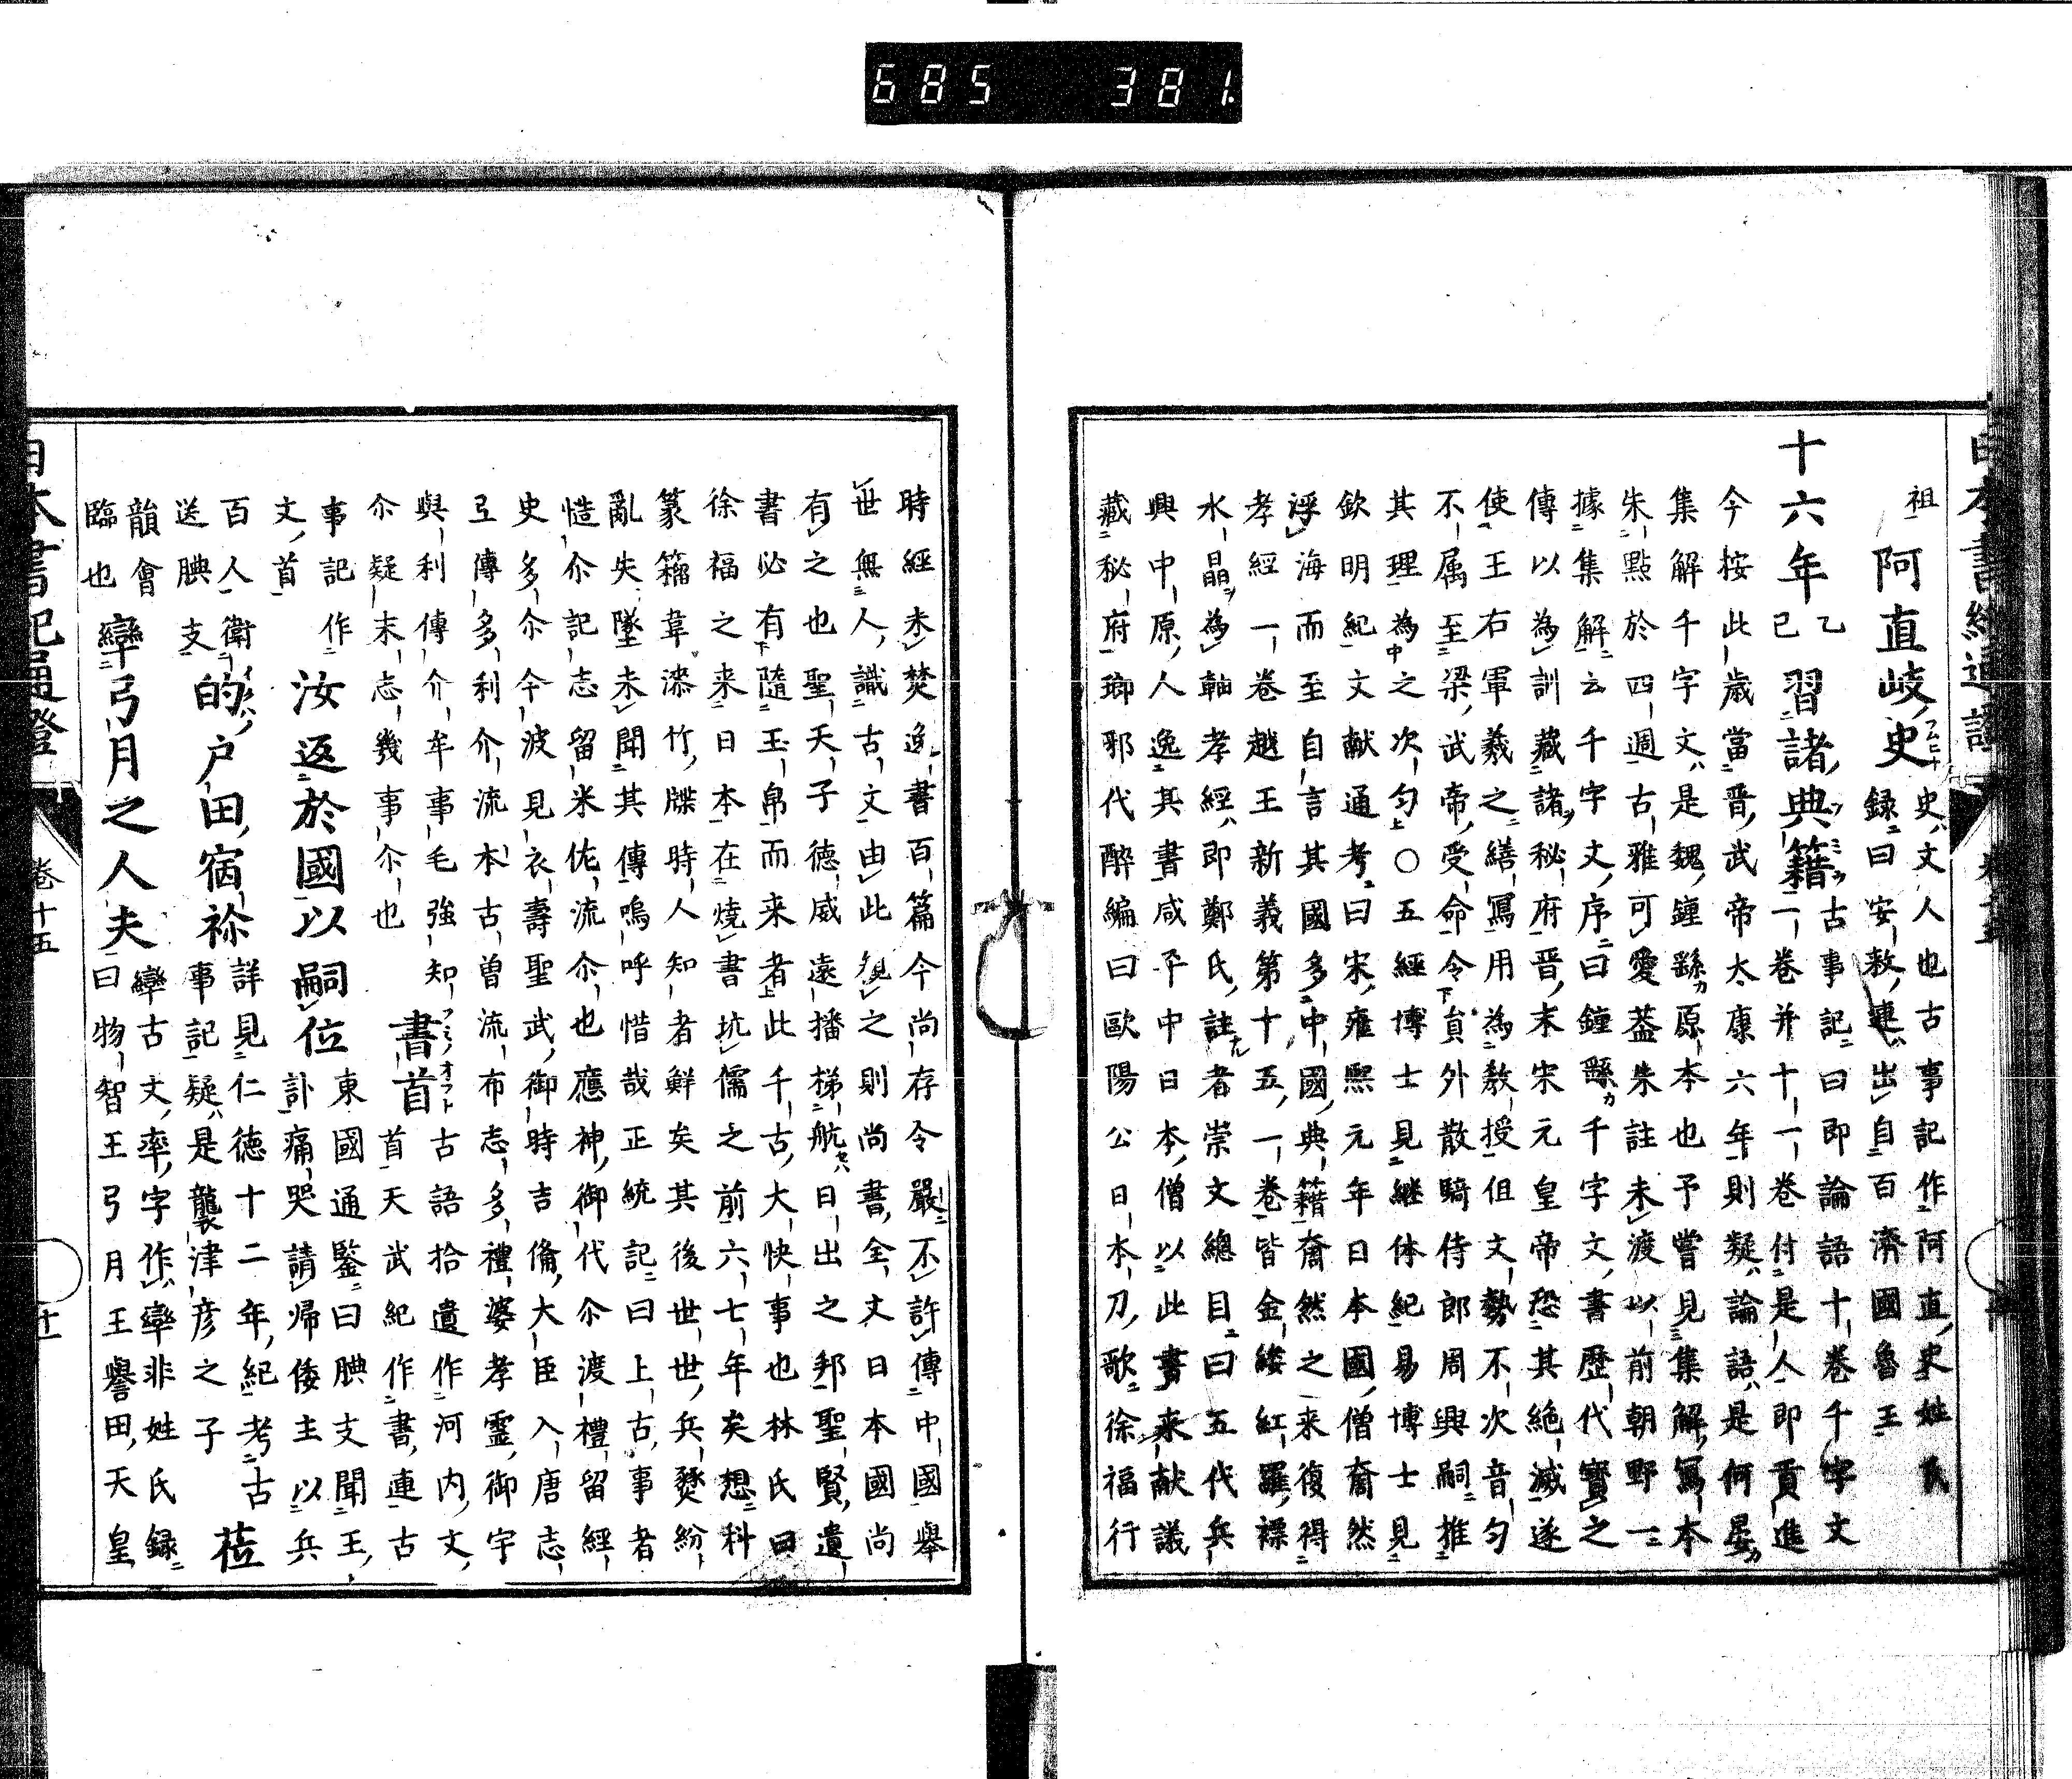 685 381
祖
阿直岐史
史文人也古事記作阿直史姓氏
録曰安敕連出自百濟國魯王
十六年
乙
已
習諸典籍
古事記曰即論語十卷千字文
一卷并十一卷付是人即貢進
今按此歳當晋武帝太康六年則疑論語是何晏
集解千字文是魏鍾繇原本也予嘗見集解寫本
朱點於四週古雅可愛葢朱註未渡以前朝野一
據集解云千字文序曰鍾繇千字文書歴代寳之
傳以為訓藏諸秘府晋末宋元皇帝恐其絶滅遂
使王右軍羲之繕寫用為教授伹文勢不次音匀
不属至梁武帝受命令貟外散騎侍郎周興嗣推
其理為之次匀〇五經博士見継体紀易博士見
欽明紀文献通考曰宋雍熙元年日本國僧奝然
浮海而至自言其國多中國典籍奝然之来復得
孝經一卷越王新義第十五一卷皆金縷紅羅褾
水晶為軸孝經即鄭氏註者崇文總目曰五代兵
興中原人逸其書咸平中日本僧以此書来献議
藏秘府瑯邪代醉編曰歐陽公日本刀歌徐福行
時經未焚逸書百篇今尚存令嚴不許傳中國舉
世無人識古文由此觀之則尚書全文日本國尚
有之也聖天子徳威遠播梯航日出之邦聖賢遺
書必有隨玉帛而来者此千古大快事也林氏曰
徐福之来日本在燒書坑儒之前六七年矣想科
篆籀韋漆竹牒時人知者鮮矣其後世世兵燹紛
亂失墜未聞其傳嗚呼惜哉正統記曰上古事者
慥尒記志留米佐流尒也應神御代尒渡禮留經
史多尒今波見衣壽聖武御時吉備大臣入唐志
弖傳多利介流本古曽流布志多禮婆孝霊御宇
與利傳介牟事毛強知
尒疑末志幾事尒也
書首
古語拾遺作河内文
首天武紀作書連古
事記作
文首
汝返於國以嗣位
東國通鑒曰腆支聞王
訃痛哭請帰倭主以兵
百人衛
送腆支
的戸田宿祢
詳見仁徳十二年紀考古
事記疑是襲津彦之子
莅
韻會
臨也
率弓月之人夫
率古文率字作率非姓氏録
曰物智王弓月王譽田天皇
日本書紀通證
卷十五
十一